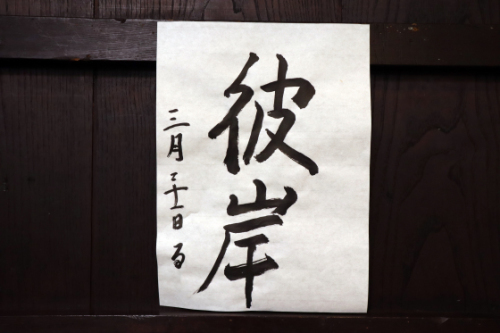 彼岸
三月二十一日